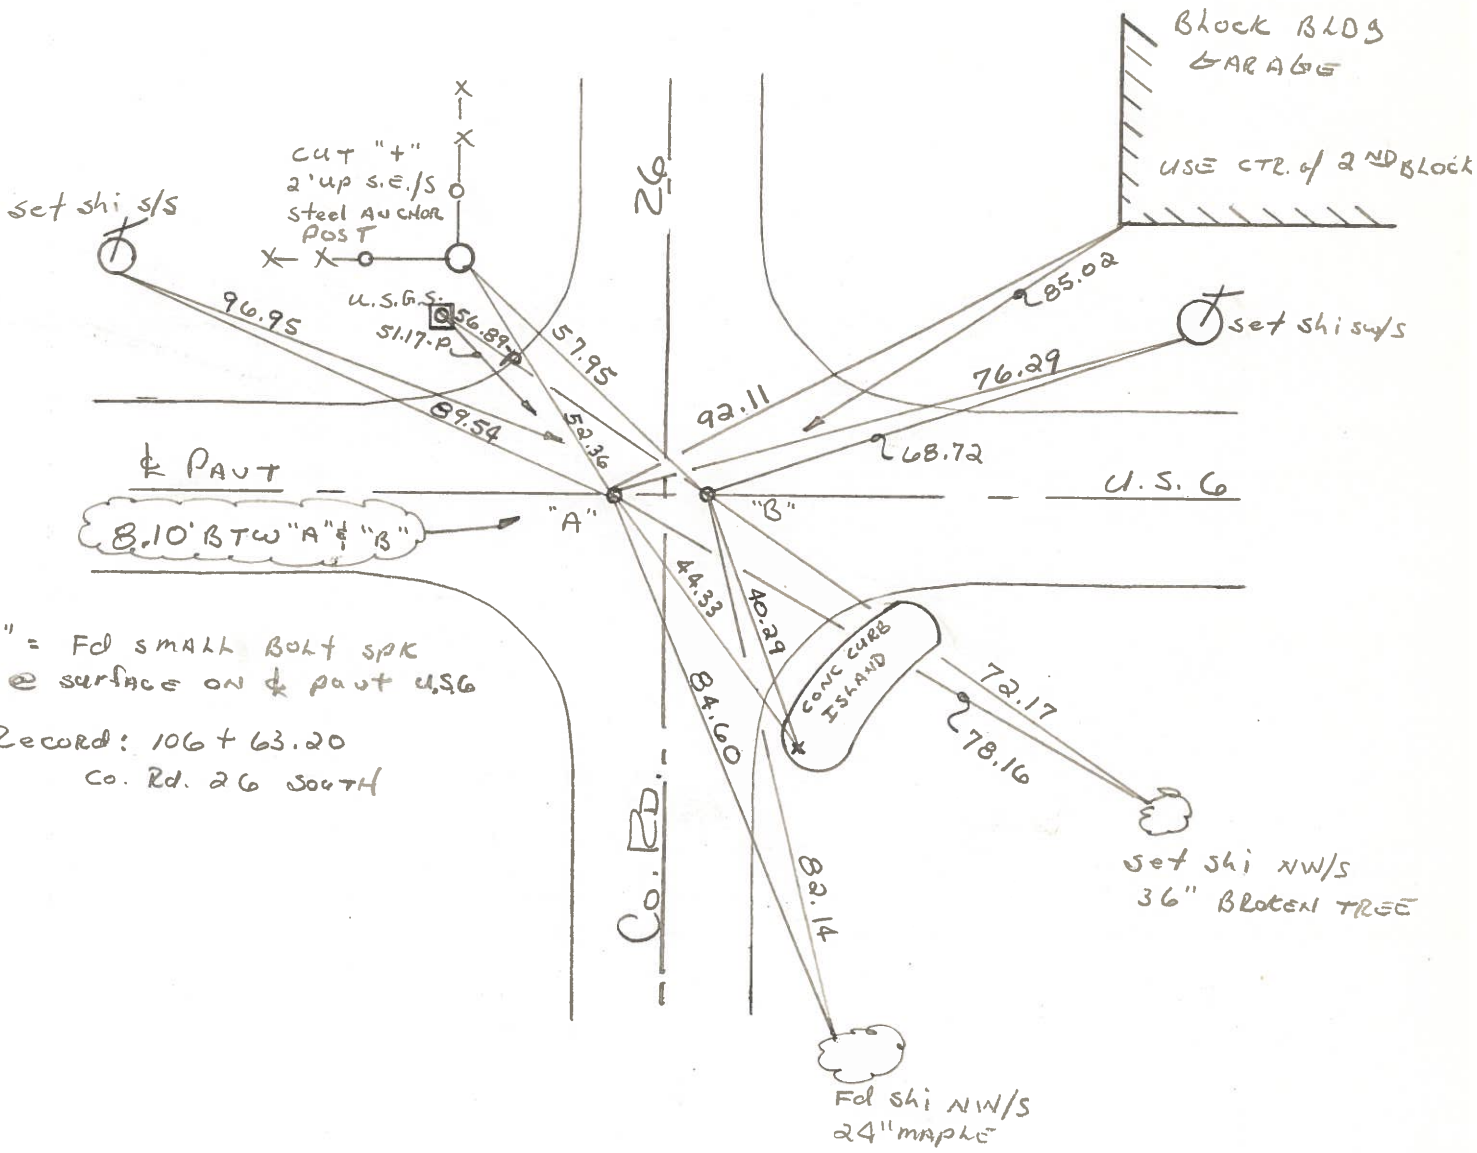 BLOCK BLDG
GARAGE
USE CTR. of 2 ND BLOCK
CUT "+"
2' UP S.E./S
Steel ANCHOR
POST
set shi s/s
U.S.G.S.
26
96.95
51.17-P
56.89-P
57.95
85.02
set shi sw/s
76.29
92.11
89.54
52.36
68.72
℄ PAVT
U.S. 6
"A"
"B"
8.10' BTW "A" & "B"
44.33
40.29
" = Fd SMALL BOLT SPK
@ SURFACE ON ℄ PAVT U.S.6
Record: 106 + 63.20
Co. Rd. 26 SOUTH
CONC CURB
ISLAND
84.60
72.17
78.16
Co. RD.
82.14
set shi NW/S
36" BROKEN TREE
Fd shi NW/S
24" MAPLE